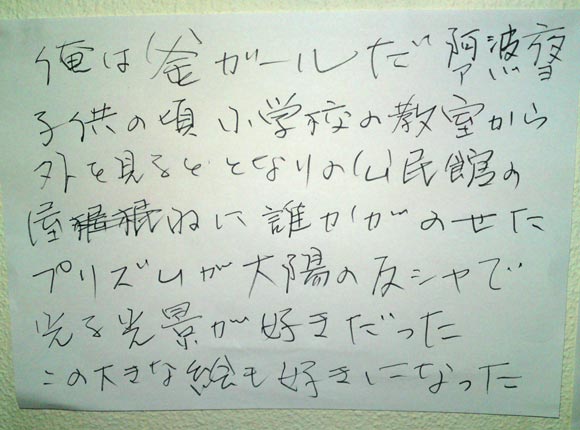 俺は釜ガールだ 阿波夜
子供の頃小学校の教室から
外を見るととなりの公民館の
屋ねに誰かがのせた
プリズムが大陽の反シャで
光る光景が好きだった
この大きな絵も好きになった